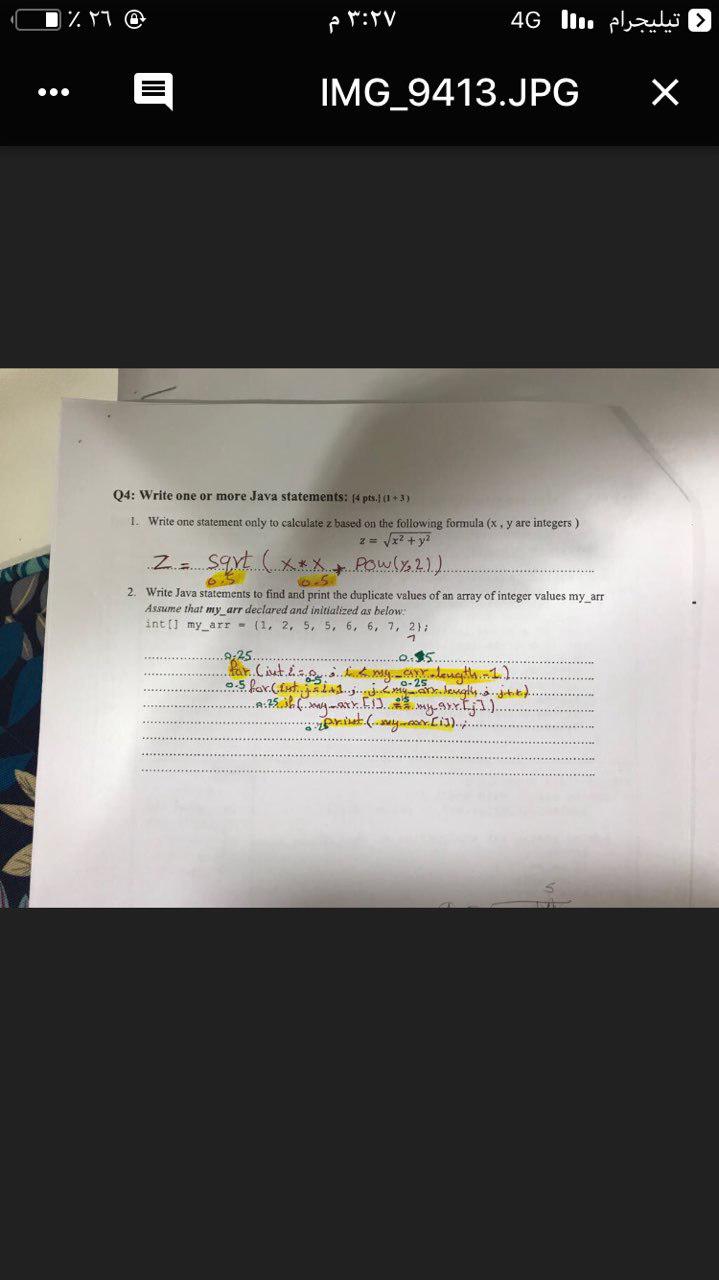 ٪ ٢٦
٣:٢٧ م
4G
تيليجرام
IMG_9413.JPG
Q4: Write one or more Java statements: [4 pts.] (1 + 3)
1. Write one statement only to calculate z based on the following formula (x , y are integers )
z = √x² + y²
Z = sqrt ( x*x + Pow(y,2))
0.5 0.5
2. Write Java statements to find and print the duplicate values of an array of integer values my_arr
Assume that my_arr declared and initialized as below:
int[] my_arr = {1, 2, 5, 5, 6, 6, 7, 2};
7
0.25
for (int i = 0 ; i < my_arr.length - 1 )
0.5 0.5 0.25
for (int j = i+1 ; j < my_arr.length ; j++)
0.25 if ( my_arr [i] == my_arr [j] )
print ( my_arr [i]) ;
5